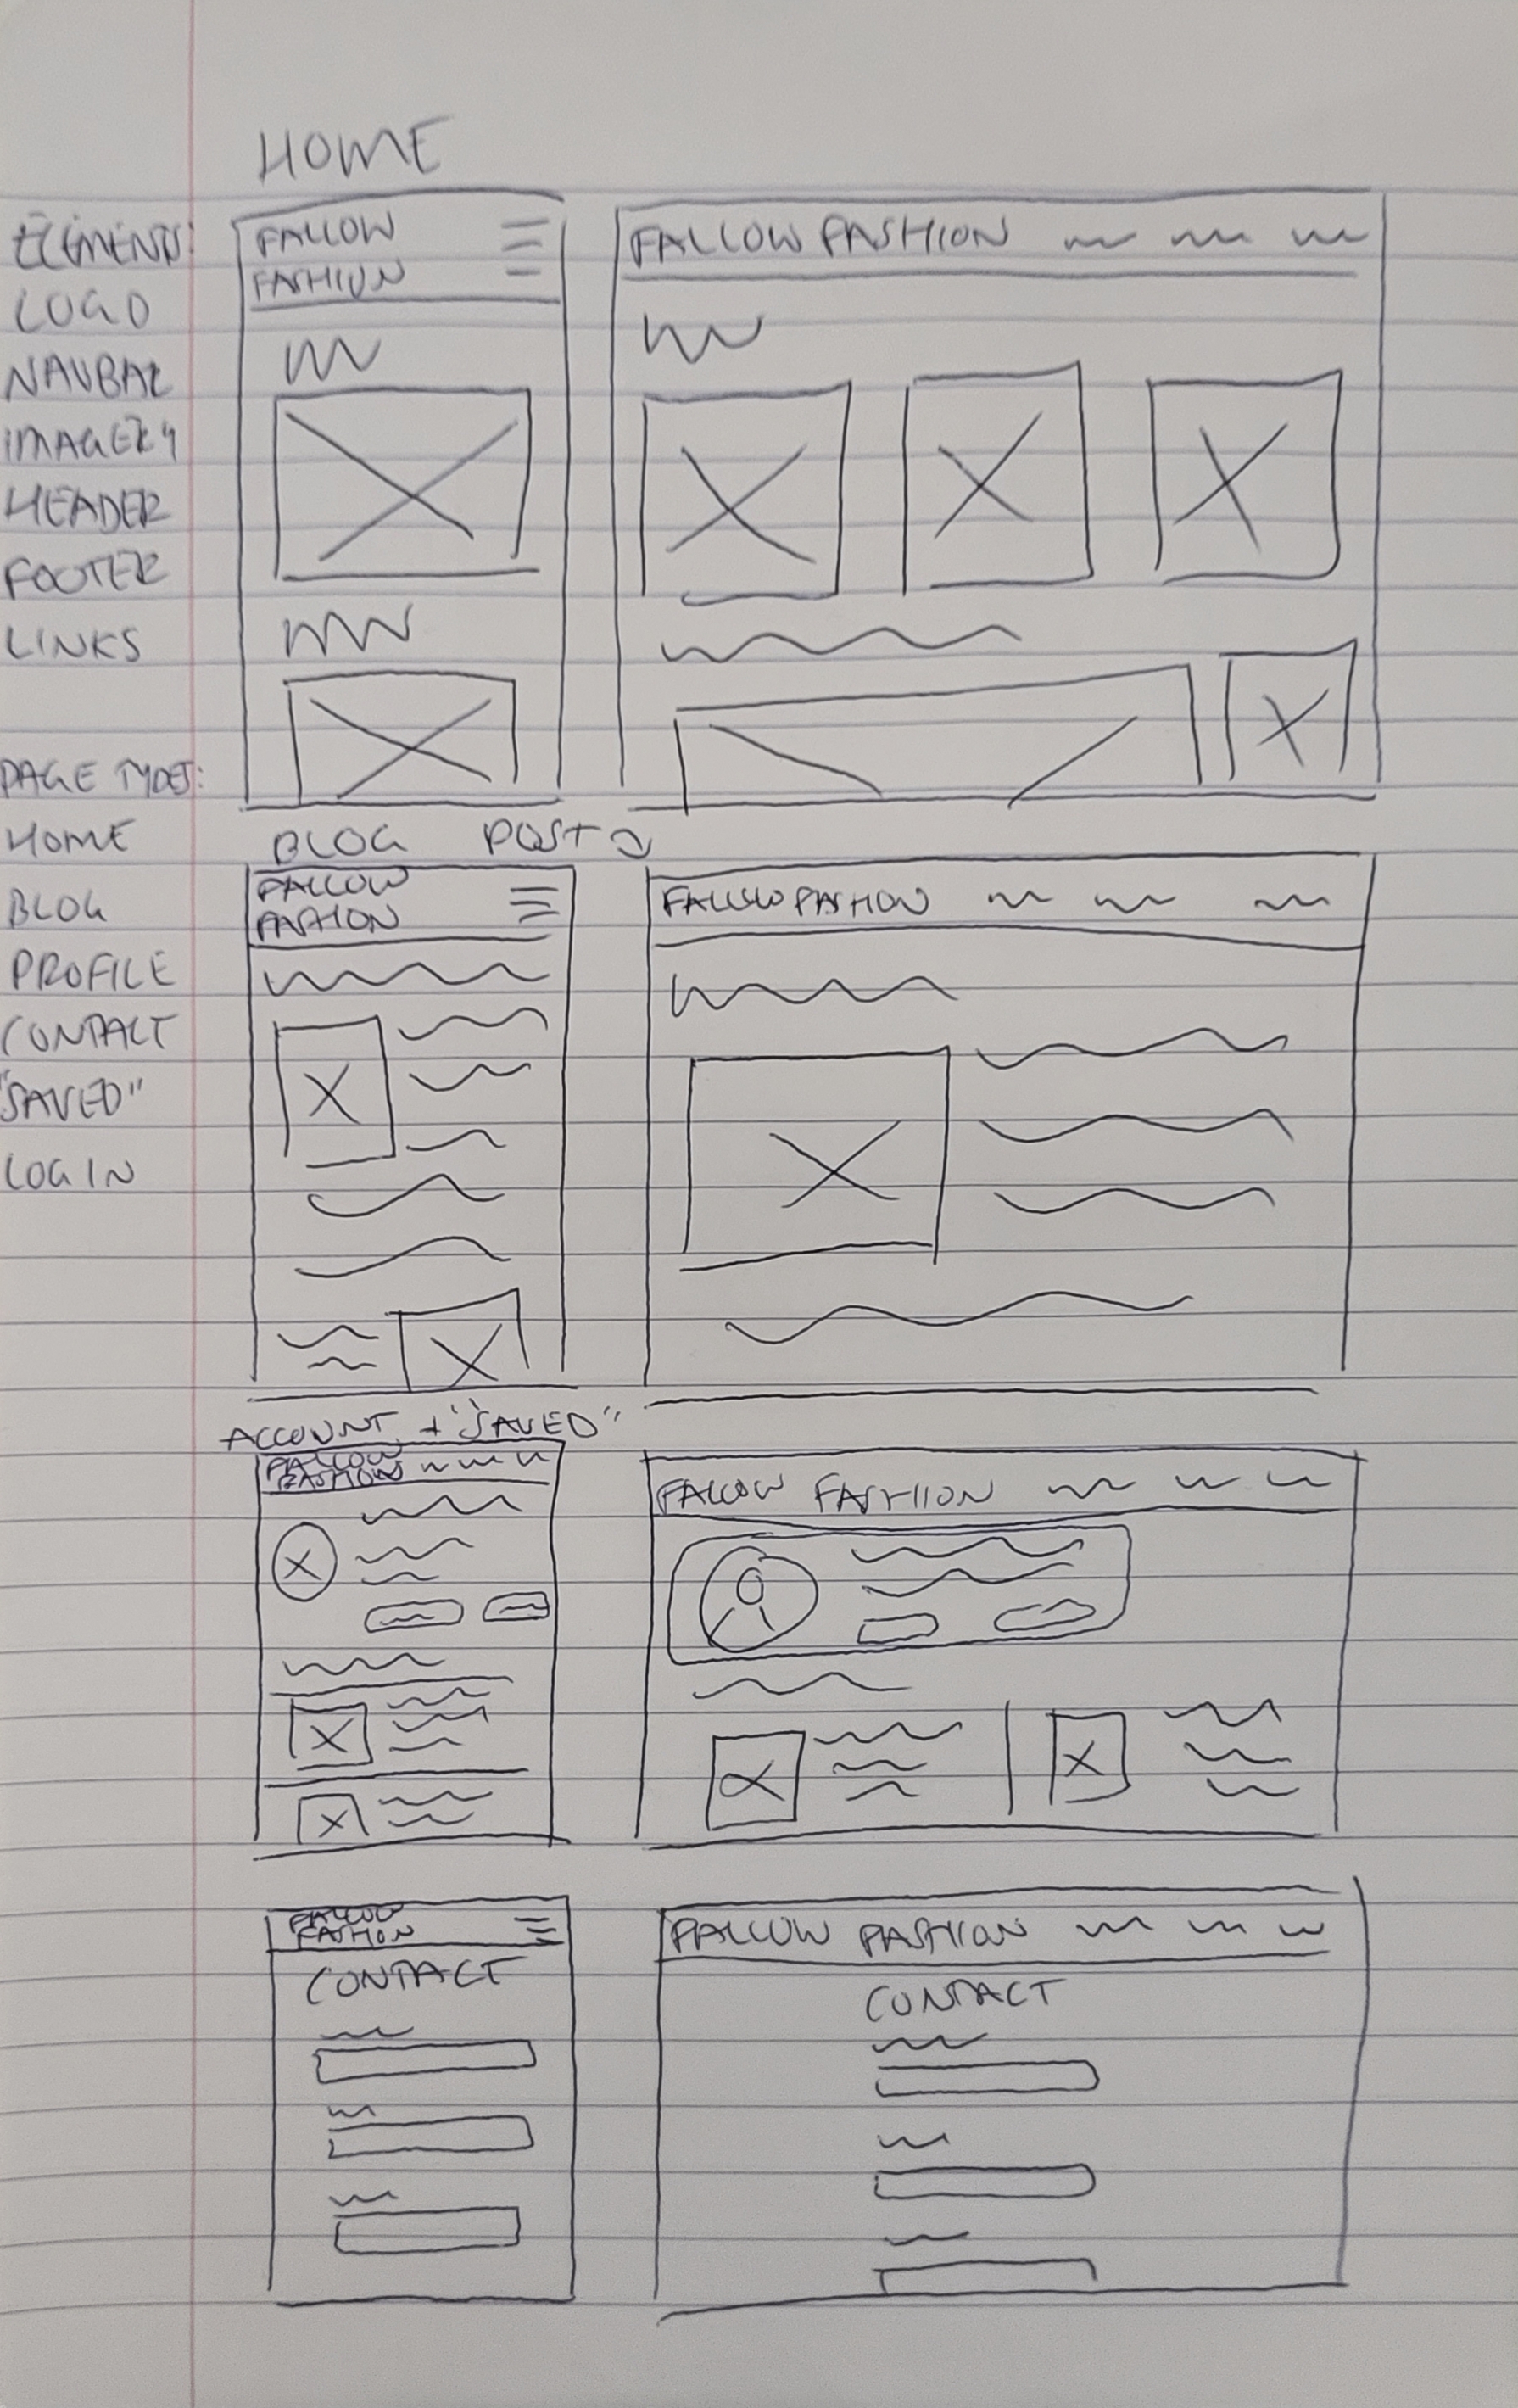 HOME
ELEMENTS:
LOGO
NAVBAR
IMAGERY
HEADER
FOOTER
LINKS
PAGE TYPES:
HOME
BLOG
PROFILE
CONTACT
"SAVED"
LOGIN
FALLOW
FASHION
FALLOW FASHION
BLOG POST
FALLOW
FASHION
FALLOW FASHION
ACCOUNT + "SAVED"
FALLOW
FASHION
FALLOW FASHION
FALLOW
FASHION
CONTACT
FALLOW FASHION
CONTACT